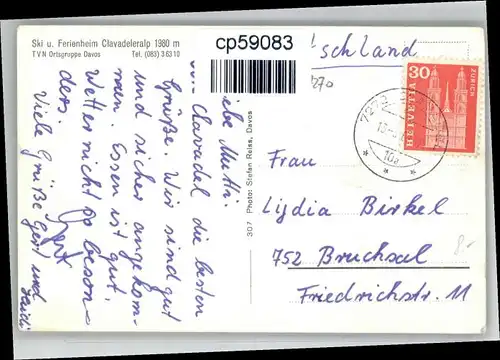 Ski u. Ferienheim Clavadeleralp 1980 m
TVN Ortsgruppe Davos Tel. (083) 3 63 10
cp59083
Liebe Mutti
Clavadel die besten
Grüße. Wir sind gut
und sicher angekom-
men. Essen ist gut.
Wetter nicht so beson-
ders.
Viele Grüße Gert und
Heidi
307 Photo: Stefan Reiss, Davos
schland
270
30
HELVETIA
ZÜRICH
7272
10a
Frau
Lydia Birkel
752 Bruchsal
Friedrichstr. 11
8.-